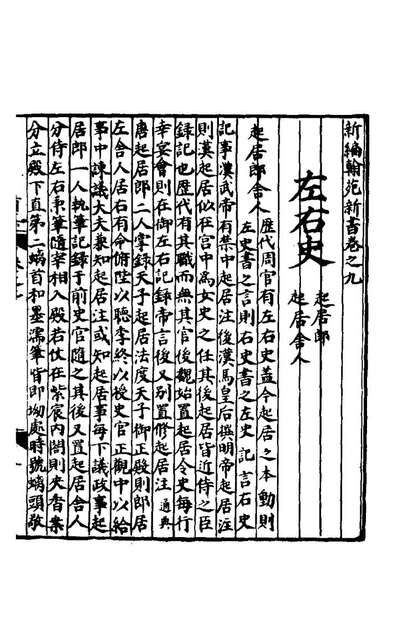 新編翰苑新書卷之九
左右史
起居郎
起居舍人
起居郎舍人
歷代周官有左右史蓋今起居之本動則
左史書之言則右史書之左史記言右史
記事漢武帝有禁中起居注後漢馬皇后撰明帝起居注
則漢起居似在宫中為女史之任其後起居皆近侍之臣
録記也歷代有其職而無其官後魏始置起居令史每行
幸宴會則在御左右記録帝言後又别置修起居注通典
唐起居郎二人掌録天子起居法度天子御正殿則郎居
左舍人居右有命俯陛以聽季終以授史官正觀中以給
事中諫議大夫兼知起居注或知起居事每下議政事起
居郎一人執筆記録于前史官隨之其後又置起居舍人
分侍左右秉筆隨宰相入殿若仗在紫宸内閤則夾香案
分立殿下直第二螭首和墨濡筆皆即坳處時號螭頭敬